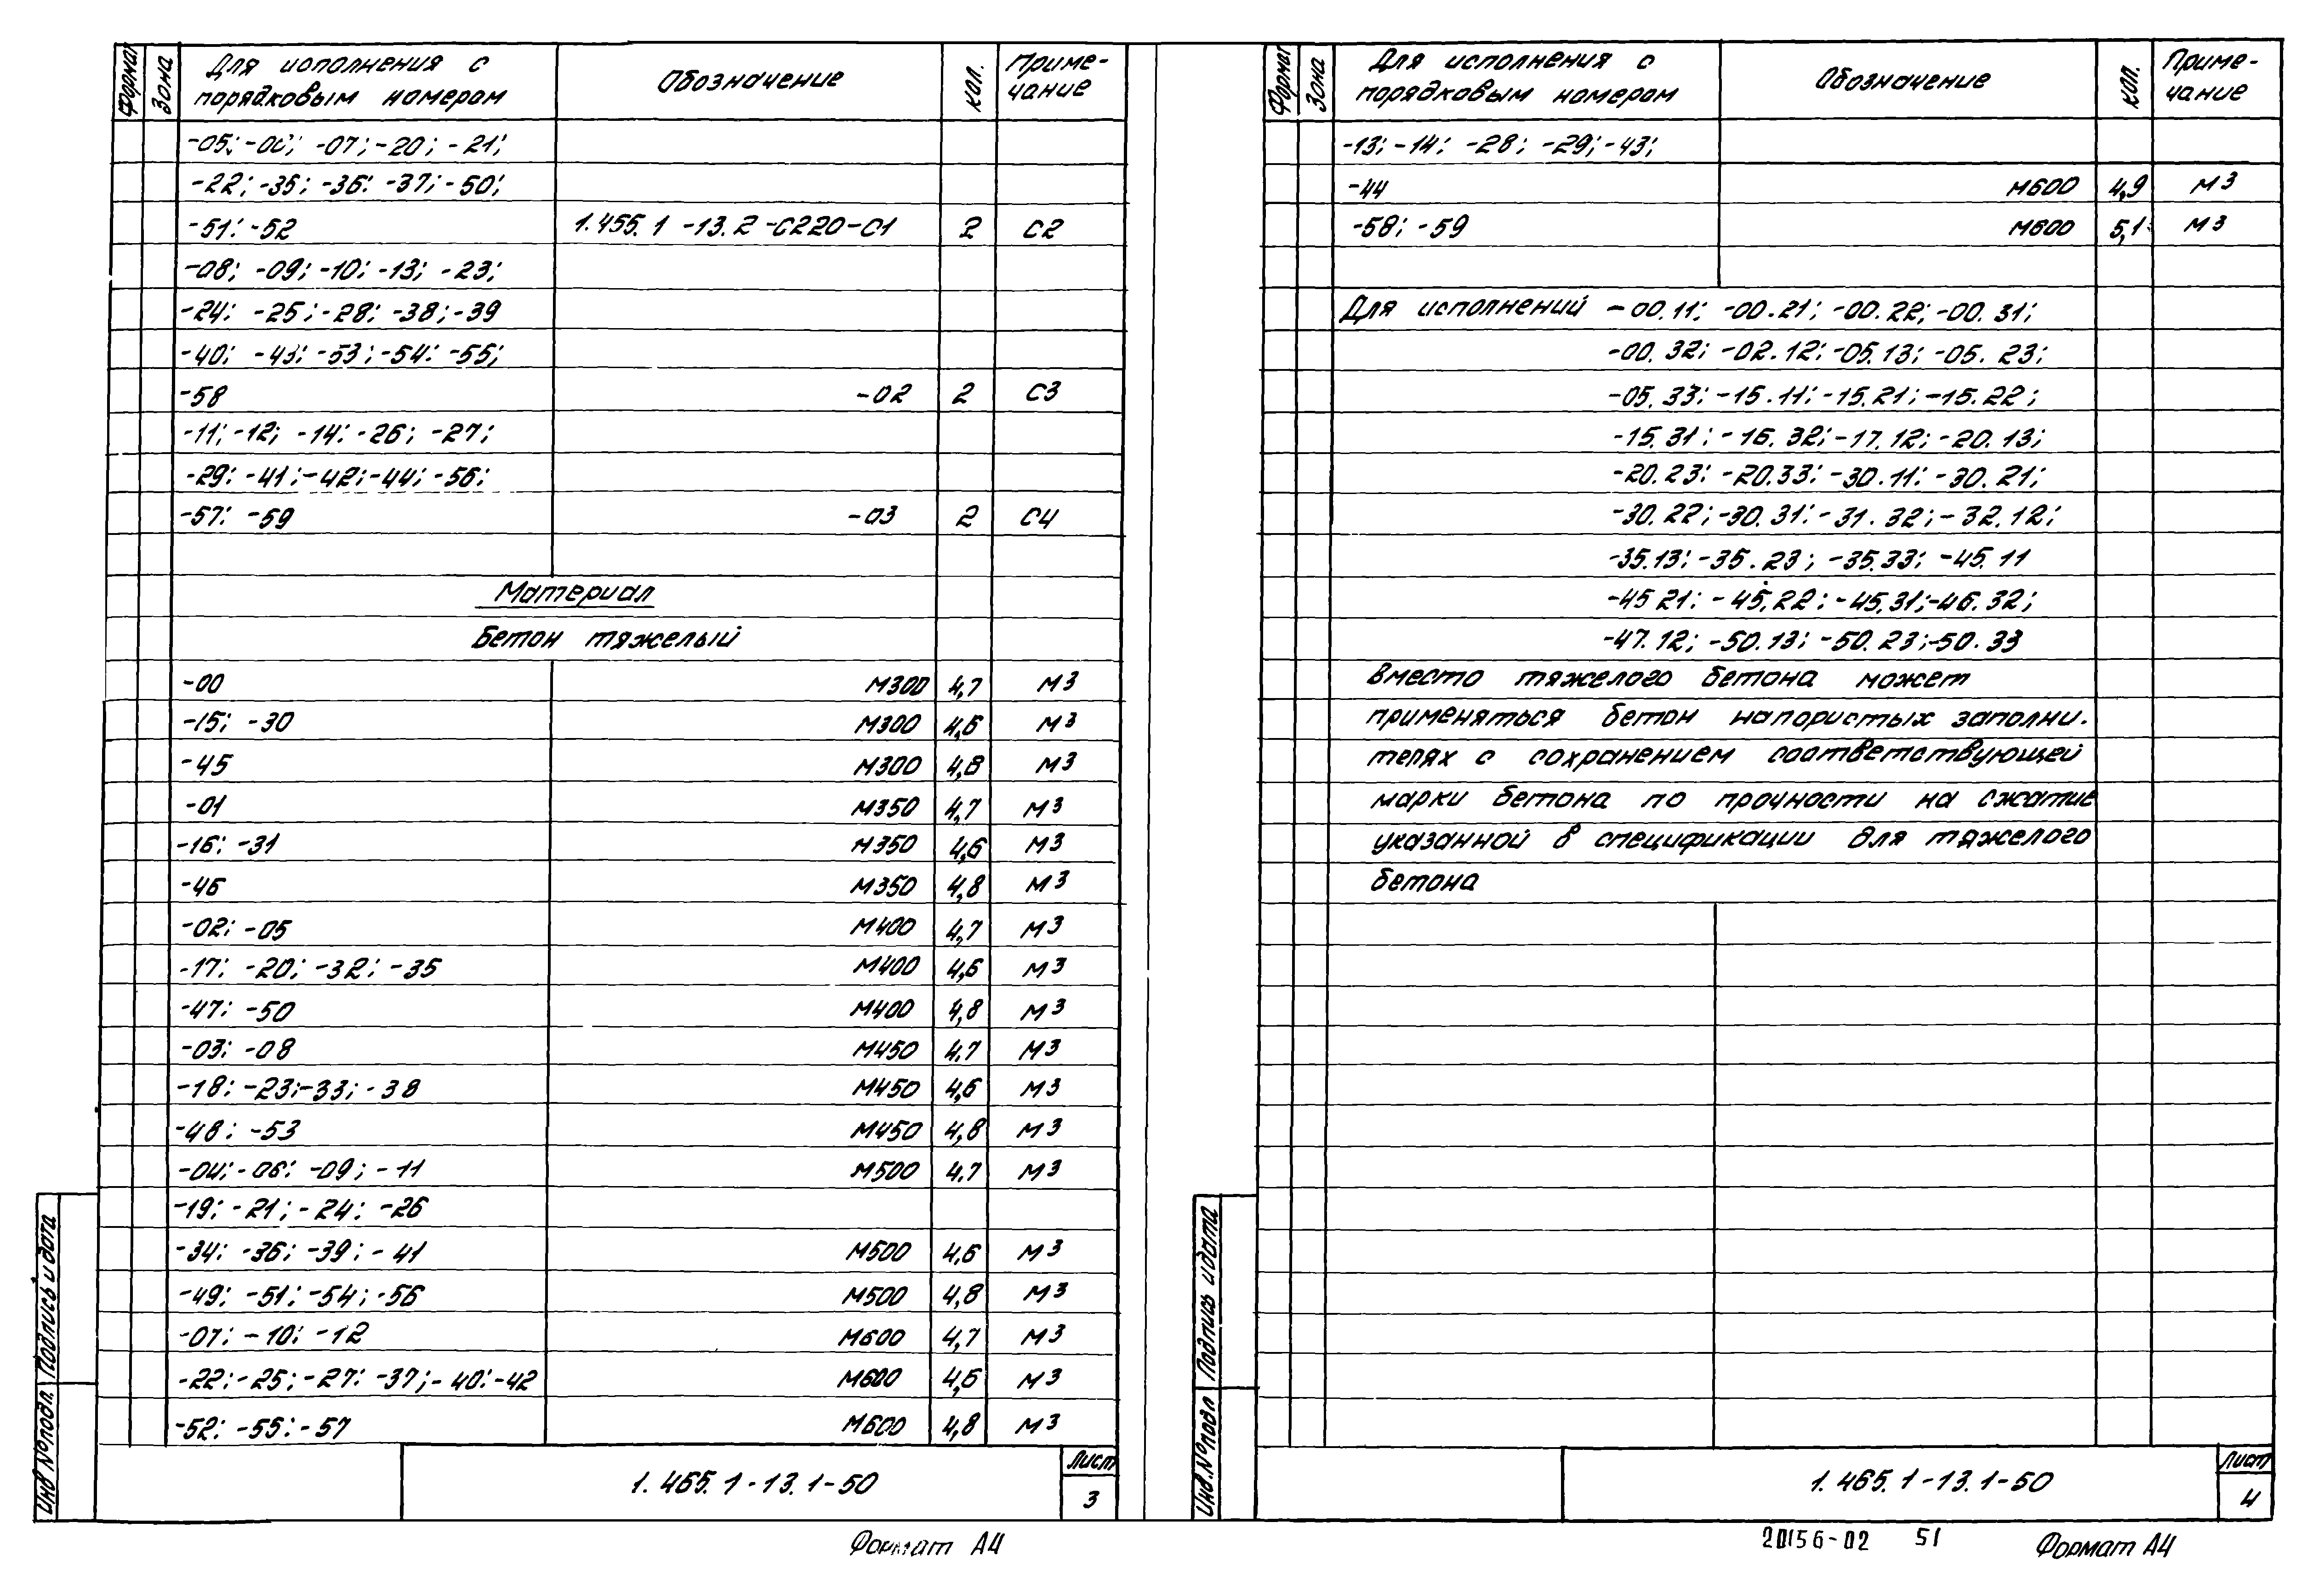 Формат Зона Для исполнения с порядковым номером Обозначение Кол. Приме-чание
-05; -06; -07; -20; -21;
-22; -35; -36; -37; -50;
-51; -52 1.455.1-13.2-С220-С1 2 С2
-08; -09; -10; -13; -23;
-24; -25; -28; -38; -39
-40; -43; -53; -54; -55;
-58 -02 2 С3
-11; -12; -14; -26; -27;
-29; -41; -42; -44; -56;
-57; -59 -03 2 С4
Материал
Бетон тяжелый
-00 М300 4,7 м3
-15; -30 М300 4,6 м3
-45 М300 4,8 м3
-01 М350 4,7 м3
-16; -31 М350 4,6 м3
-46 М350 4,8 м3
-02; -05 М400 4,7 м3
-17; -20; -32; -35 М400 4,6 м3
-47; -50 М400 4,8 м3
-03; -08 М450 4,7 м3
-18; -23; -33; -38 М450 4,6 м3
-48; -53 М450 4,8 м3
-04; -06; -09; -11 М500 4.7 м3
-19; -21; -24; -26
-34; -36; -39; -41 М500 4,6 м3
-49; -51; -54; -56 М500 4,8 м3
-07; -10; -12 М600 4,7 м3
-22; -25; -27; -37; -40; -42 М600 4,6 м3
-52; -55; -57 М600 4,8 м3
Инв №подл. Подпись и дата
1.465.1-13.1-50
Лист
3
Формат А4
Формат Зона Для исполнения с порядковым номером Обозначение Кол. Приме-чание
-13; -14; -28; -29; -43;
-44 М600 4,9 м3
-58; -59 М600 5,1 м3
Для исполнений -00.11; -00.21; -00.22; -00.31;
-00.32; -02.12; -05.13; -05.23;
-05.33; -15.11; -15.21; -15.22;
-15.31; -16.32; -17.12; -20.13;
-20.23; -20.33; -30.11; -30.21;
-30.22; -30.31; -31.32; -32.12;
-35.13; -35.23; -35.33; -45.11
-45 21; -45.22; -45.31; -46.32;
-47.12; -50.13; -50.23; -50.33
вместо тяжелого бетона может
применяться бетон напористых заполни.
телях с сохранением соответствующей
марки бетона по прочности на сжатие
указанной в спецификации для тяжелого
бетона
Инв.№подл Подпись и дата
1.465.1-13.1-50
Лист
4
20156-02 51
Формат А4